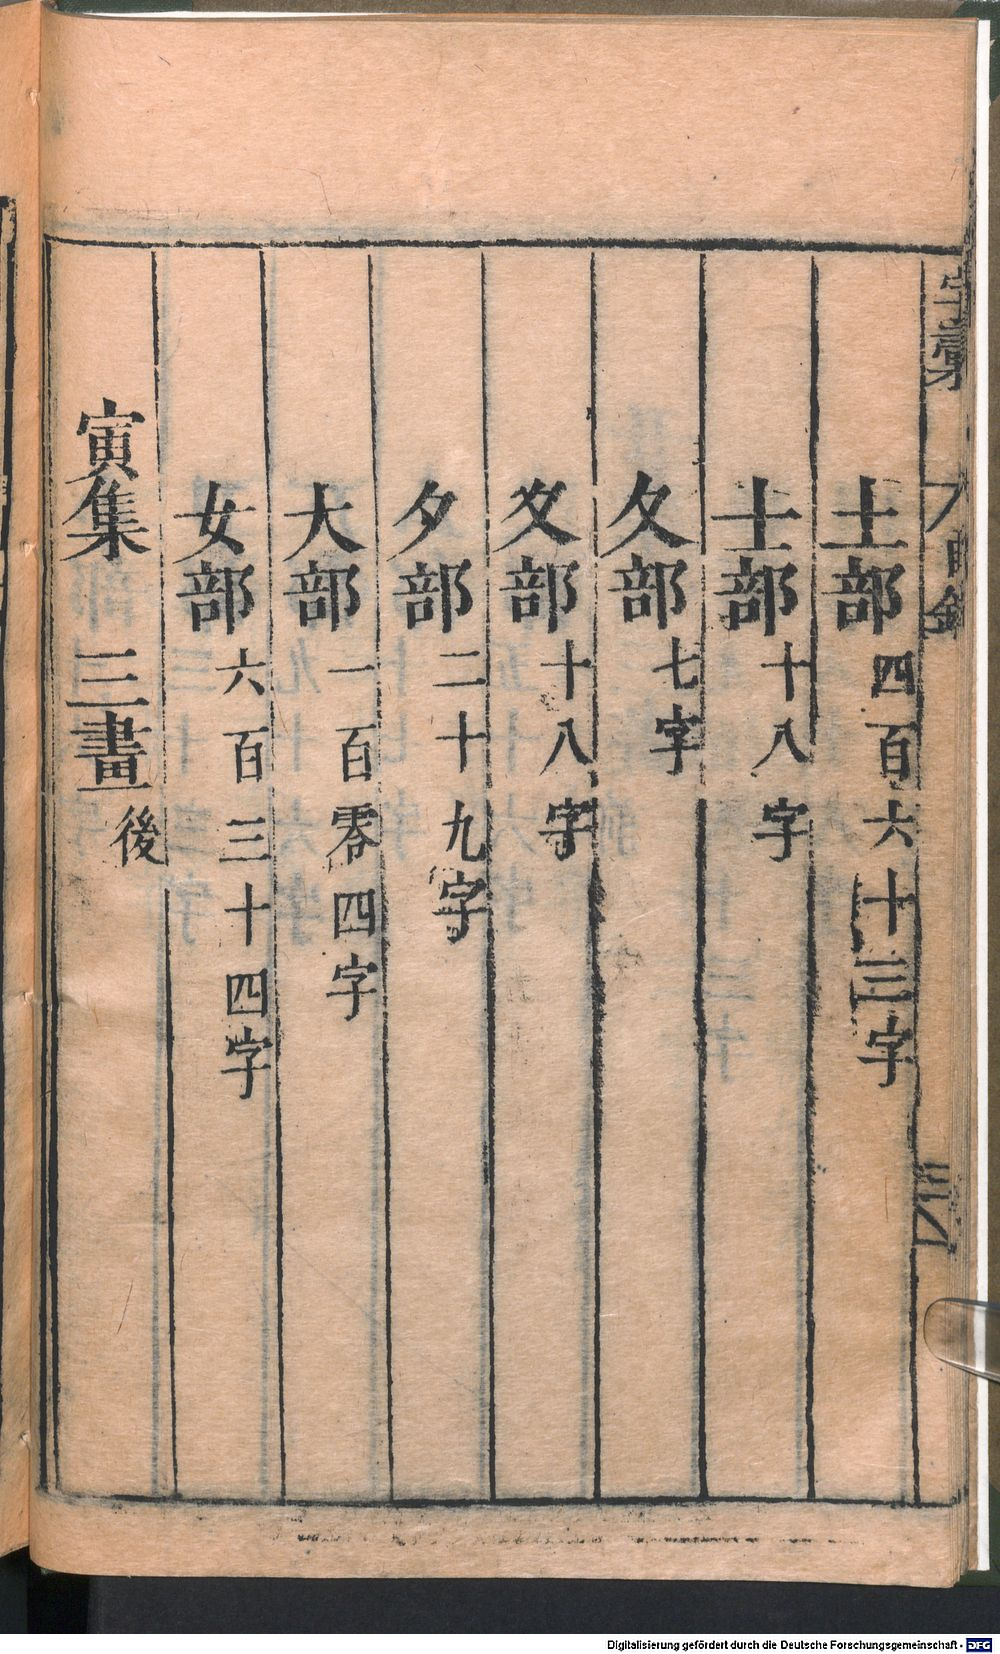 字彙 目錄 三
土部 四百六十三字
士部 十八字
夂部 七字
夊部 十八字
夕部 二十九字
大部 一百零四字
女部 六百三十四字
寅集 三畫 後
Digitalisierung gefördert durch die Deutsche Forschungsgemeinschaft - DFG